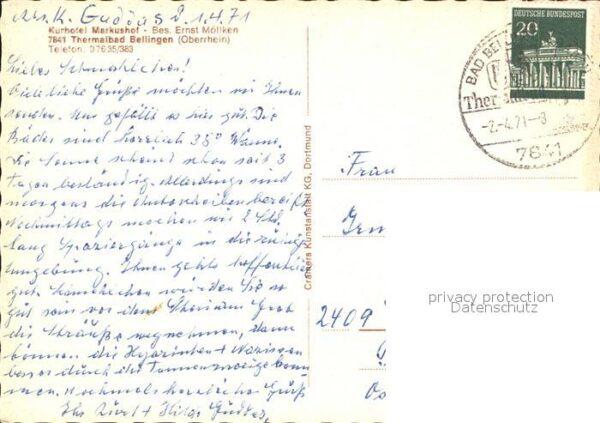 K. 1.4.71
Kurhotel Markushof - Bes. Ernst Möllken
7841 Thermalbad Bellingen (Oberrhein)
Telefon: 0 76 35/383
Liebes
viele liebe Grüße möchten wir Ihnen
senden. Uns gefällt es hier gut. Die
Bäder sind herrlich 38° Wärme.
Die Sonne scheint schon seit 3
Tagen beständig. Allerdings sind
morgens die Autoscheiben bereift
Nachmittags machen wir 2 Std.
lang Spaziergänge in die
Umgebung. Ihnen gehts hoffentlich
gut. würden Sie so
gut sein vor dem Grab
die Sträuße wegnehmen, dann
können die Hyazinten + Narzissen
besser durch die Tannenzweige
Nochmals herzliche Grüße
Ihr + Hilge
Cramers Kunstanstalt KG, Dortmund
DEUTSCHE BUNDESPOST
20
BAD BELL
Ther
-2.-4.71-8
7841
Frau
2409
privacy protection
Datenschutz